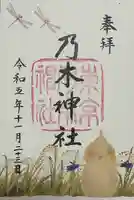 奉拝
乃木神社
令和五年十一月二十三日